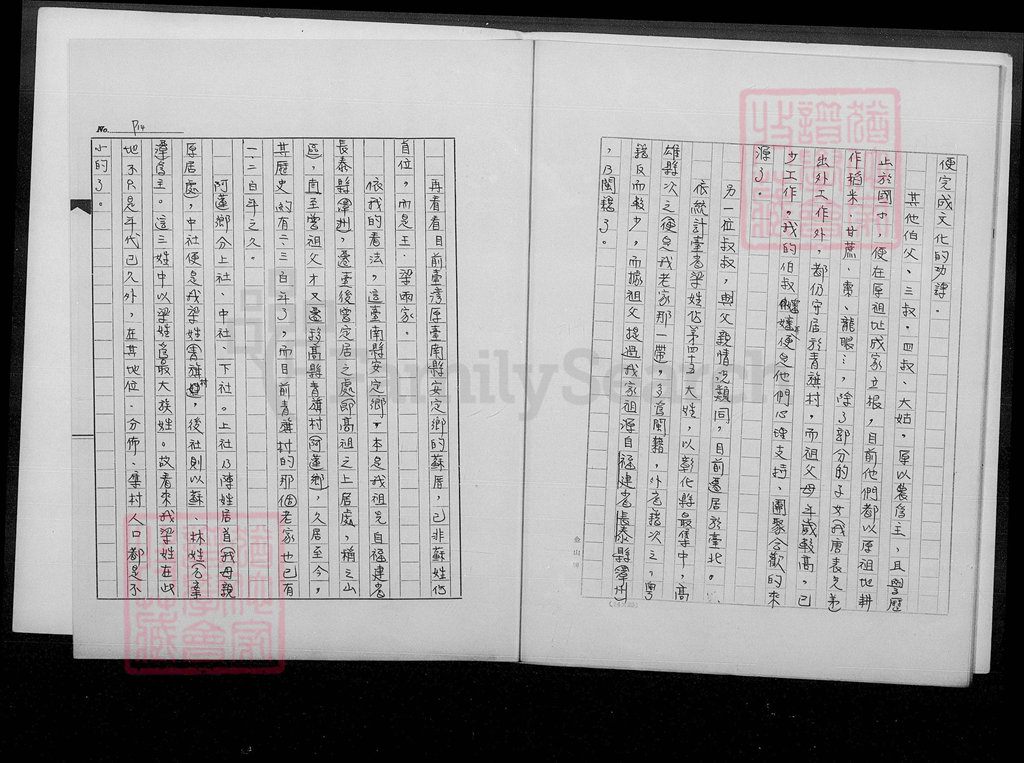 便完成文化的功課。
其他伯父、三叔、四叔、大姑,原以農為主,且學歷
止於國中,便在原祖址成家立根,目前他們都以原祖地耕
作稻米、甘蔗、棗、龍眼…,除了部分的子女(我唐表兄弟
出外工作外,都仍守居於青旗村,而祖父母年歲較高,已
少工作。我的伯叔嬸便是他們心理支持、團聚合歡的來
源了。
另一位叔叔,與父親情況類同,目前遷居於臺北。
依統計臺省梁姓佔第四十五大姓,以彰化縣最集中,高
雄縣次之便是我老家那一帶,多為閩籍,外省籍次之,粵
籍反而較少,而據祖父提過我家祖源自福建省長泰縣(漳州
,乃閩籍了。
No. P14
再看看目前臺灣原臺南縣安定鄉的蘇厝,已非蘇姓佔
首位,而是王、梁兩家。
依我的看法,這臺南縣安定鄉,本是我祖先自福建省
長泰縣(漳州),遷臺後曾定居之處即高祖之上居處,稱之山
區,直至曾祖父才又遷移高縣青旗村(阿蓮鄉),久居至今,
其歷史約有二三百年了,而目前青旗村的那個老家也已有
一二百年之久。
阿蓮鄉分上社、中社、下社。上社乃陳姓居首(我母親
原居處),中社便是我梁姓(青旗村),後社則以蘇、林姓
為主。這三姓中以梁姓為最大族姓。故看來我梁姓在此
地不只是年代已久外,在其地位、分佈、集村人口都是不
小的了。
猶他家
譜學會
收藏
猶他家
譜學會
收藏
FamilySearch